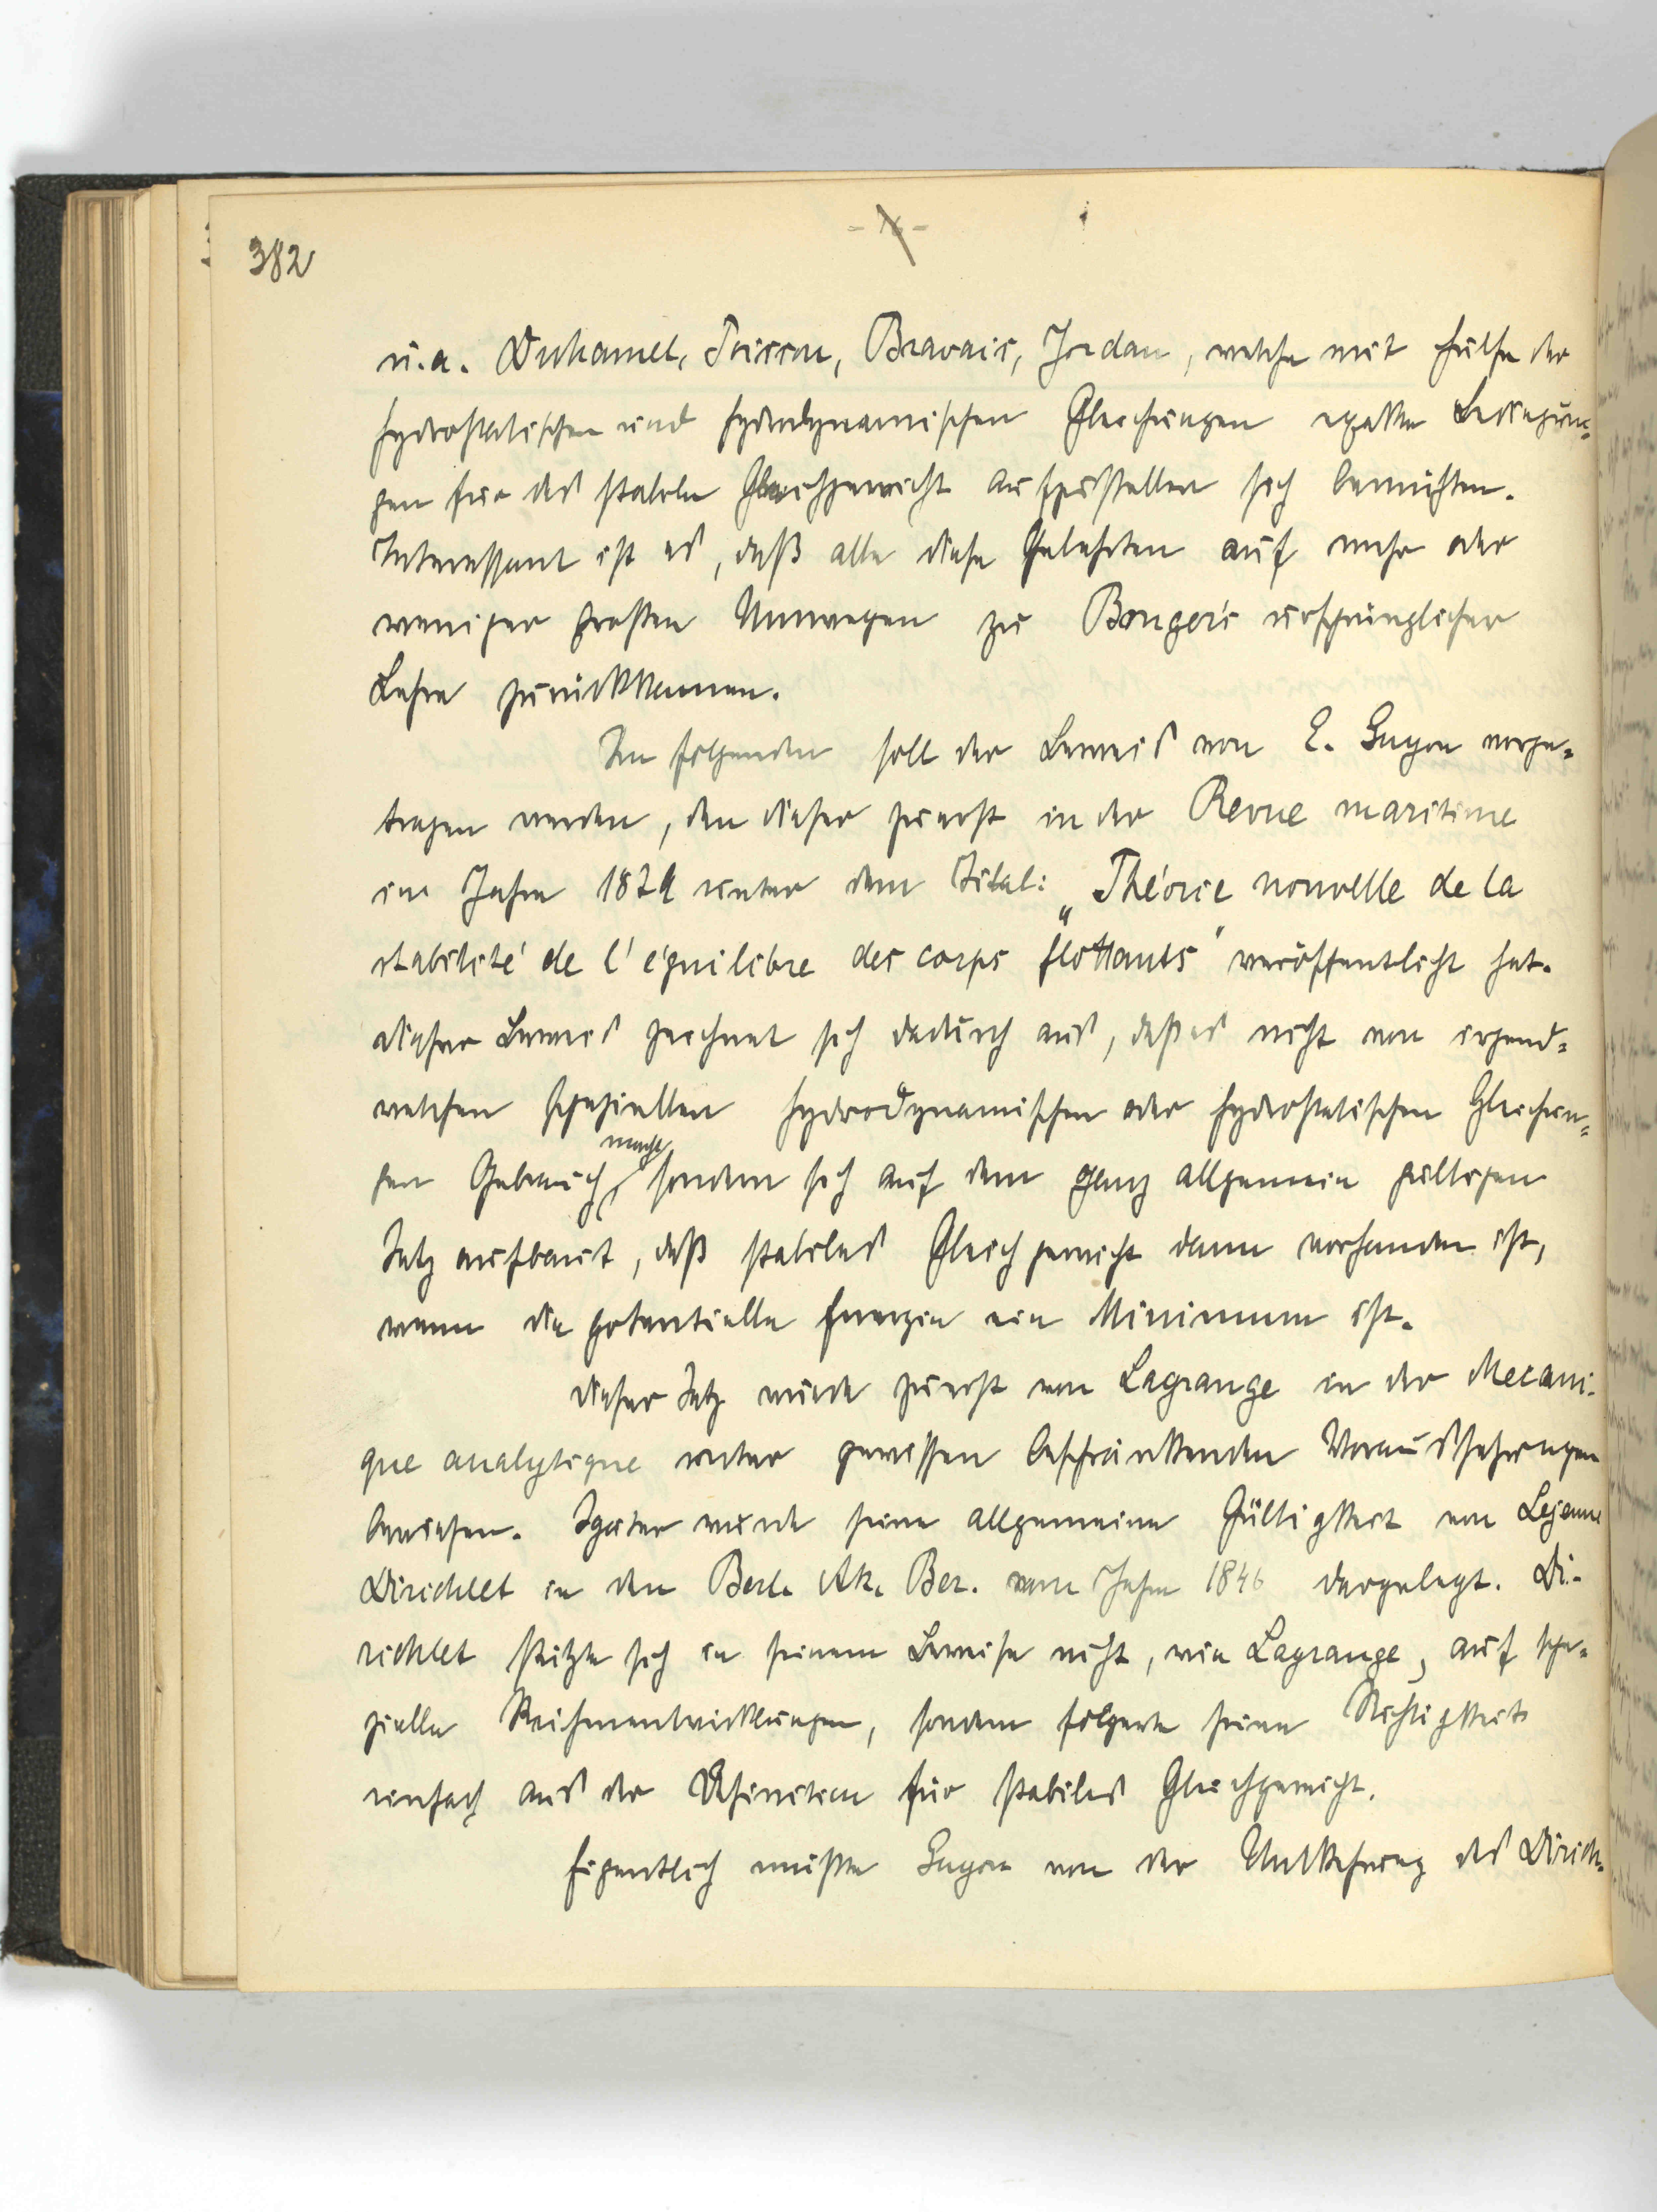 382
u. a. Duhamel, Poisson, Bravais, Jordan, welche mit Hülfe der
hydrostatischen und hydrodynamischen Gleichungen exakte Bedingun=
gen für das stabile Gleichgewicht aufzustellen sich bemühten.
Interessant ist es, daß alle diese Gelehrten auf mehr oder
weniger großen Umwegen zu Bouger's ursprünglicher
Lehre zurückkamen.
Im folgenden soll der Beweis von E. Guyou vorge=
tragen werden, den dieser zuerst in der Revue maritime
im Jahre 1879 unter dem Titel: „Théorie nouvelle de la
stabilité de l'équilibre des corps flottants" veröffentlicht hat.
Dieser Beweis zeichnet sich dadurch aus, daß es nicht von irgend=
welchen speziellen hydrodynamischen oder hydrostatischen Gleichun=
macht
gen Gebrauch, sondern sich auf dem ganz allgemein gültigen
Satz aufbaut, daß stabiles Gleichgewicht dann vorhanden ist,
wenn die potentielle Energie ein Minimum ist.
Dieser Satz wurde zuerst von Lagrange in der Mecani-
que analytique unter gewissen beschränkenden Voraussetzungen
bewiesen. Später wurde seine allgemeine Gültigkeit von Lejeune
Dirichlet in den Berl. Ak. Ber. vom Jahre 1846 dargelegt. Di-
richlet stützte sich in seinem Beweise nicht, wie Lagrange, auf spe=
zielle Reihenentwicklungen, sondern folgerte seine Richtigkeit
einfach aus der Definition für stabiles Gleichgewicht.
Eigentlich mußte Guyou von der Umkehrung des Dirich=